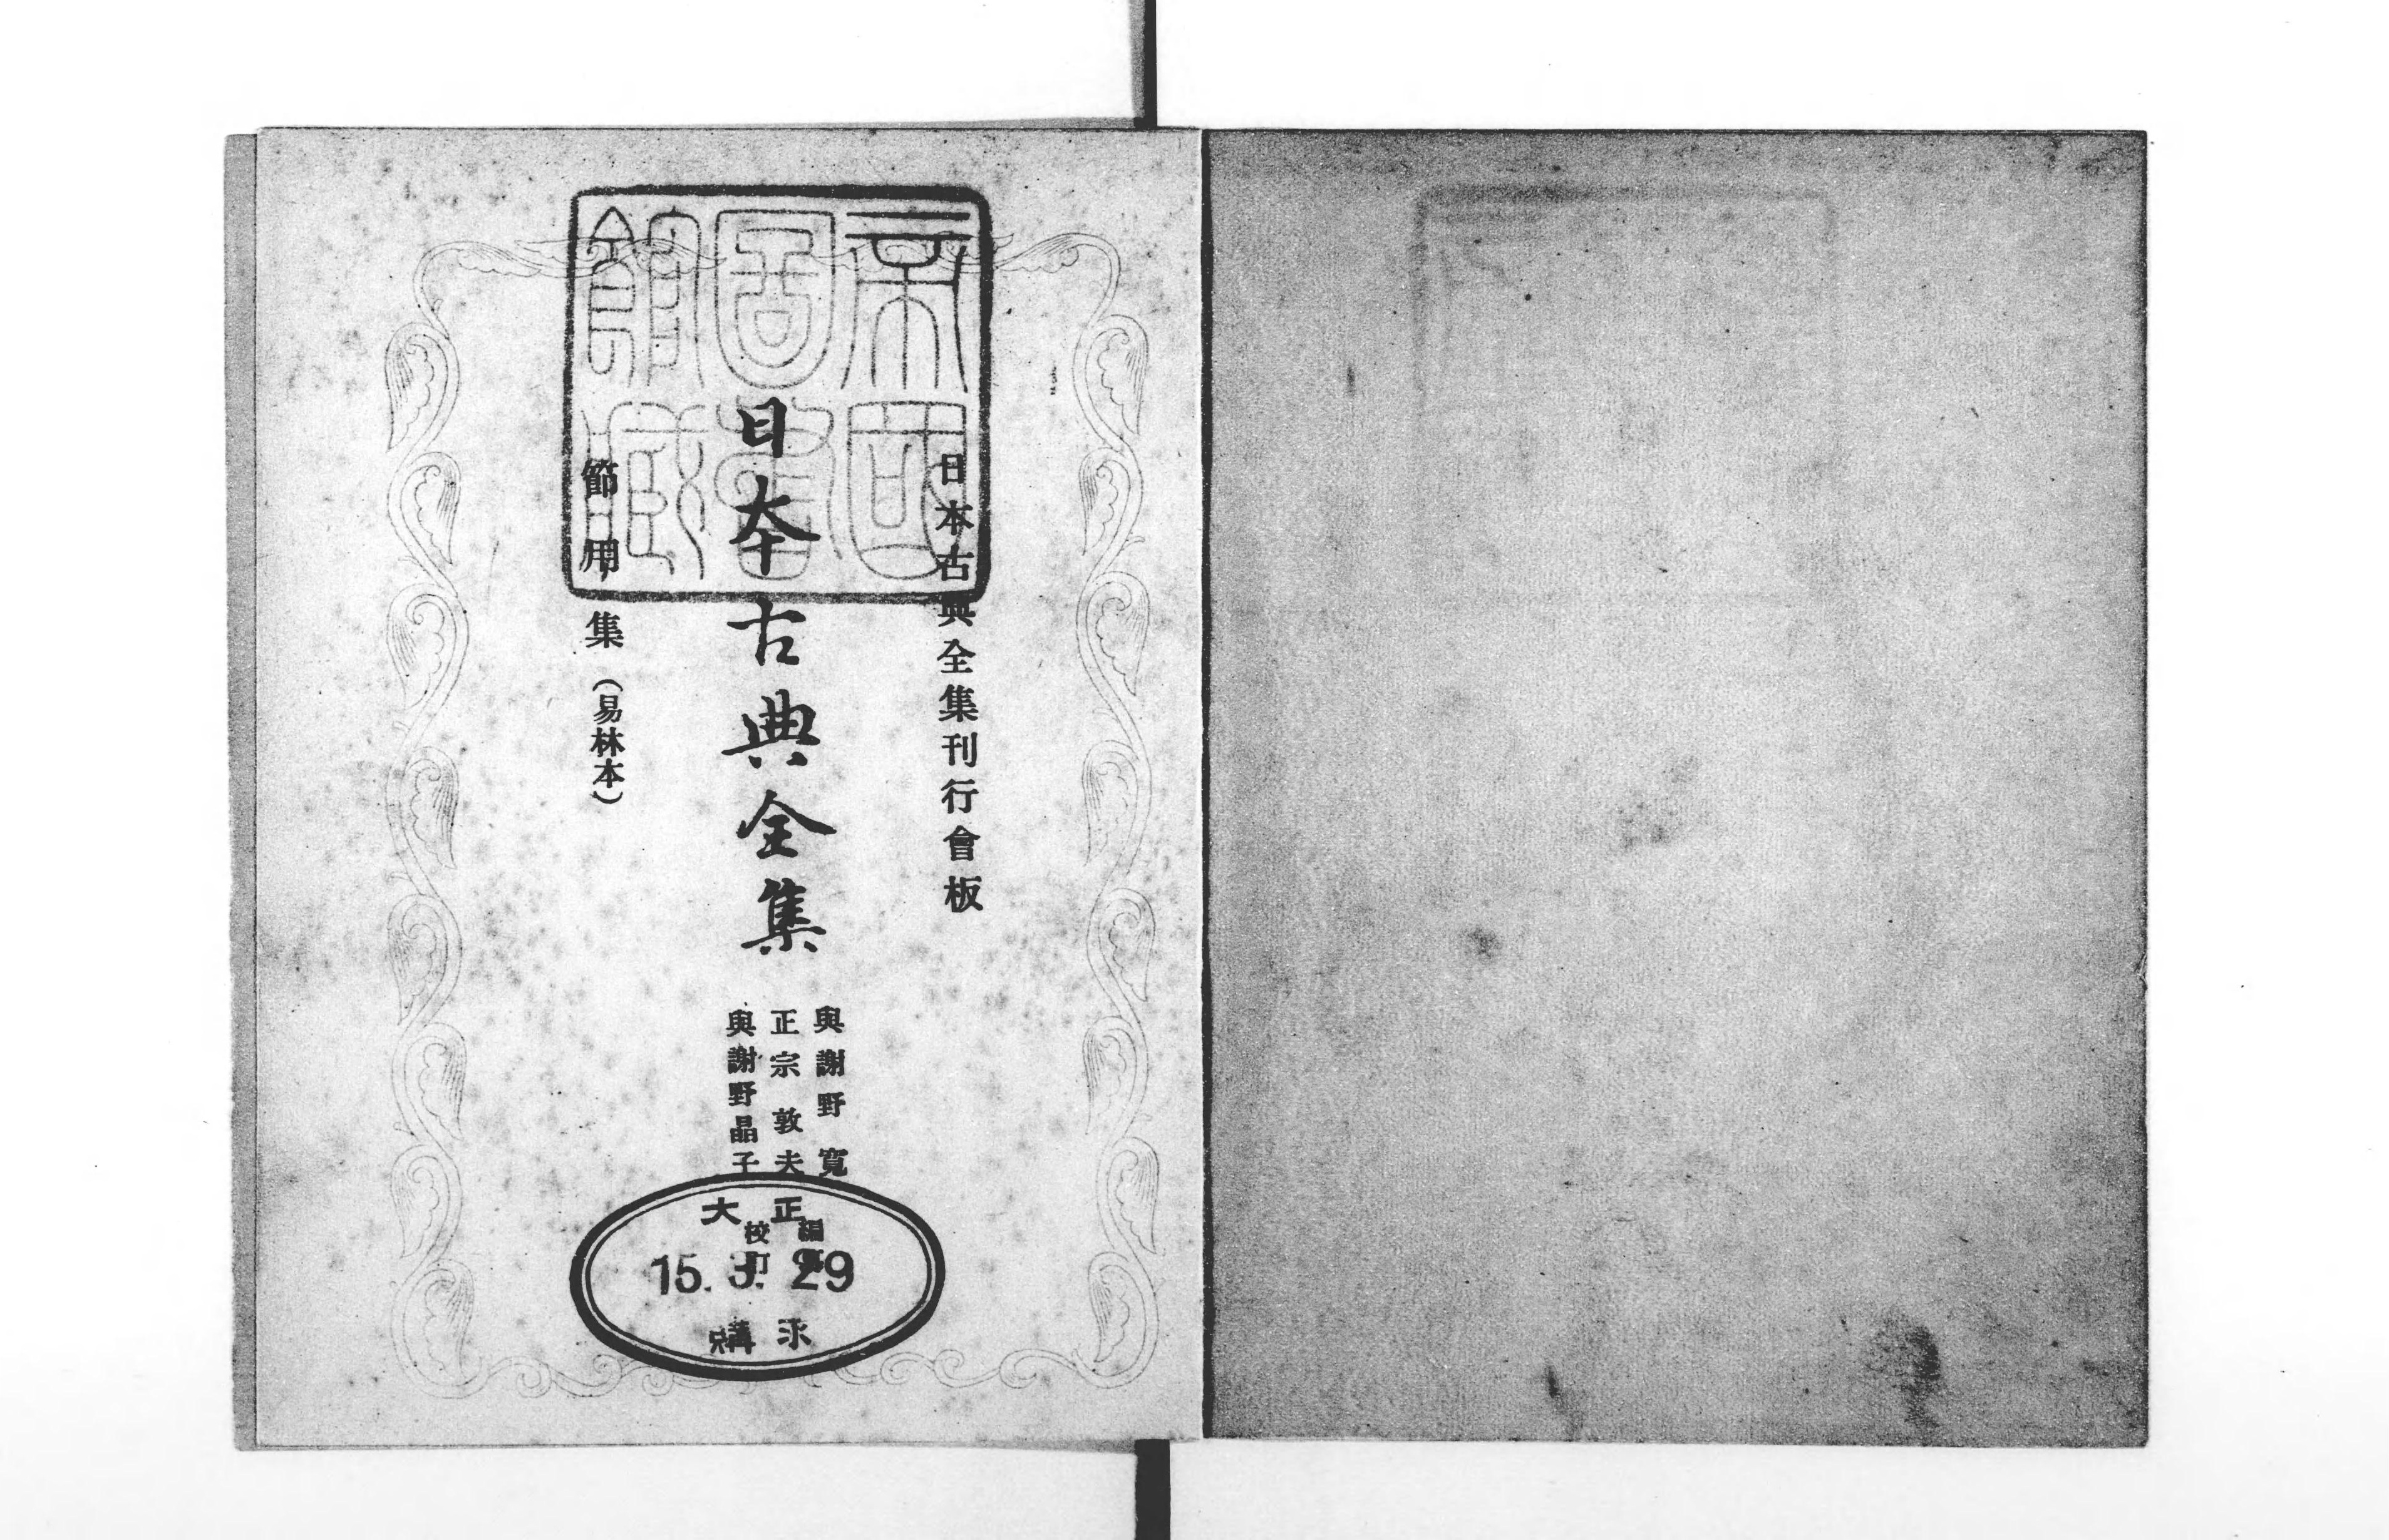 日本古典全集刊行會板
日本古典全集
節用集（易林本）
與謝野寬
正宗敦夫
與謝野晶子
編纂
校訂
帝國
圖書
館藏
大正
15. 3. 29
購求